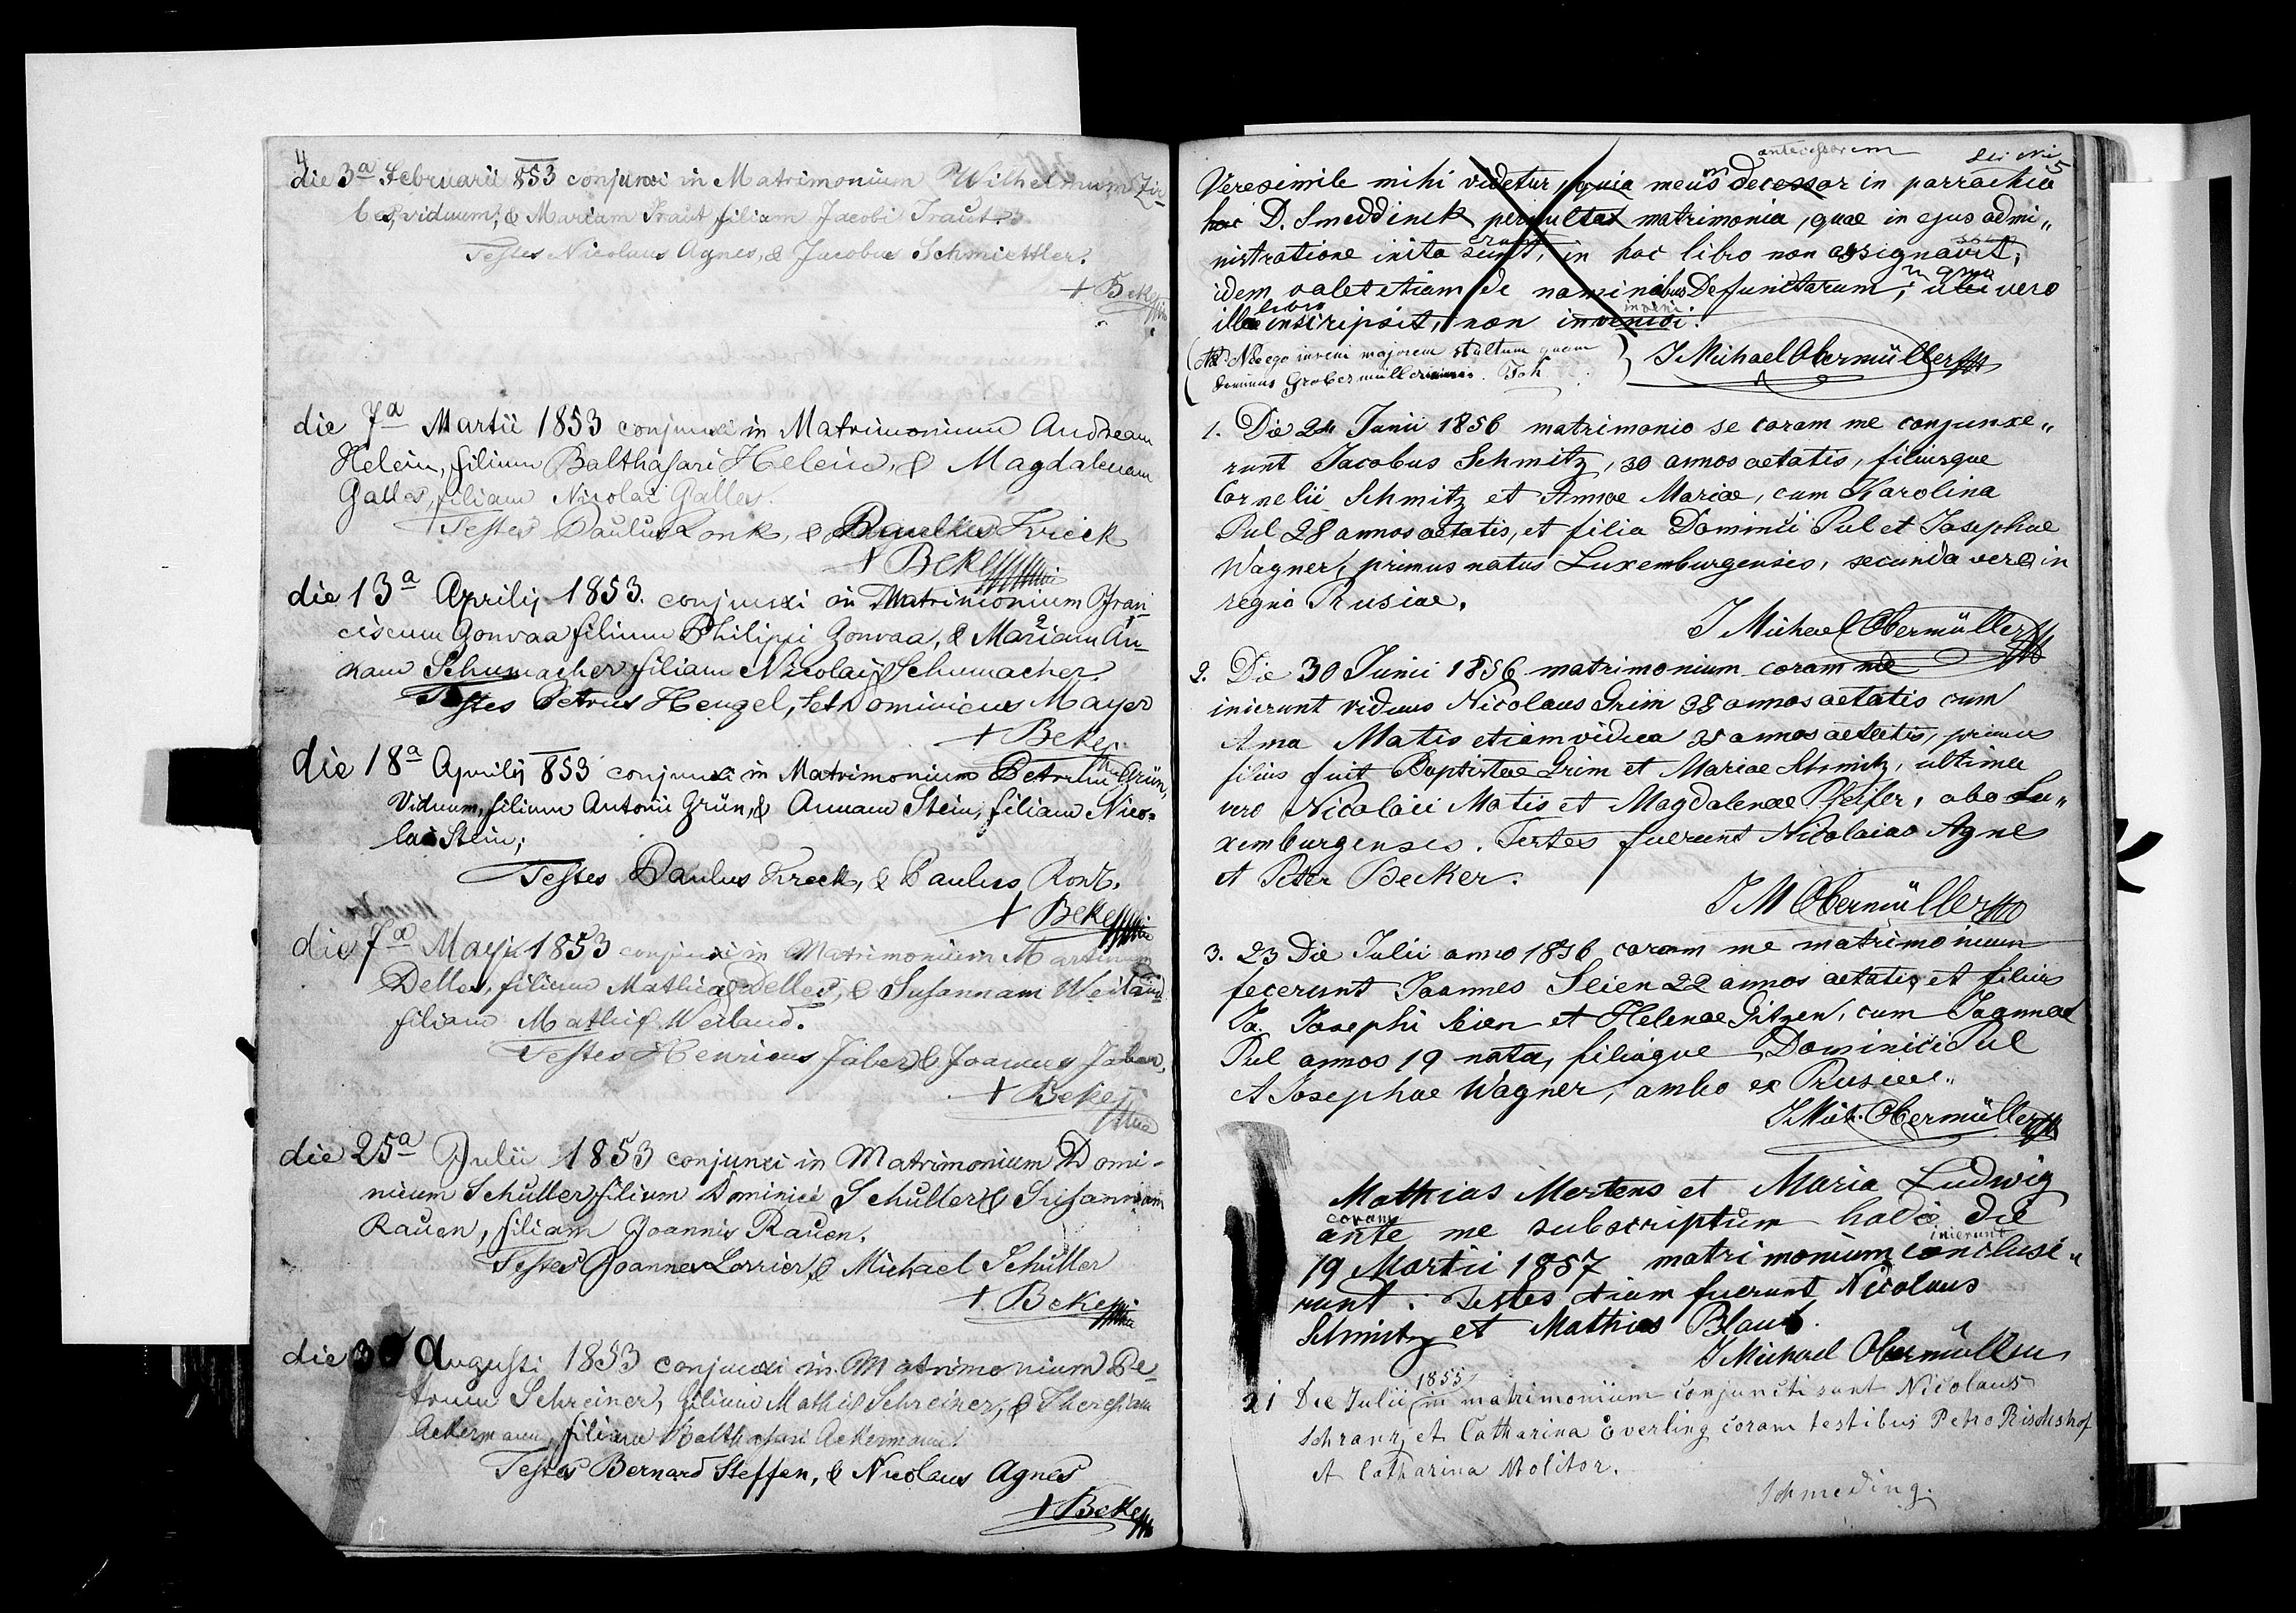 4
die 3a Februarii 853 conjunxi in Matrimonium Wilhelmum Zir-
bes, viduum, & Mariam Traut filiam Jacobi Traut.
Testes Nicolaus Agnes, & Jacobus Schmiettler.
+ Beke
die 7a Martii 1853 conjunxi in Matrimonium Andream
Helein, filium Balthasari Helein, & Magdalenam
Galles, filiam Nicolai Galles.
Testes Paulus Konk, & Paulus Krieck
+ Beke
die 13a Aprilij 1853. conjunxi in Matrimonium Fran-
ciscum Gonvaa filium Philippi Gonvaa, & Mariam An-
nam Schumacher filiam Nicolaij Schumacher.
Testes Petrus Hengel, et Dominicus Mayer
+ Beke
die 18a Aprilij 853 conjunxi in Matrimonium Petrum Grün,
Viduum, filium Antonii Grün, & Annam Stein, filiam Nico-
lai Stein;
Testes Paulus Kreck, & Paulus Konk.
+ Beke
die 7a Maji 1853 conjunxi in Matrimonium Martinum
Delles, filium Mathiae Delles, & Susannam Weiland
filiam Mathis Weiland.
Testes Henricus Faber & Joannes Faber.
+ Beke
die 25a Julii 1853 conjunxi in Matrimonium Domi-
nicum Schuller filium Dominici Schuller & Susannam
Rauen, filiam Joannis Rauen.
Testes Joannes Lorrier & Michael Schuller
+ Beke
die 30 Augusti 1853 conjunxi in Matrimonium Pe-
trum Schreiner, filium Mathis Schreiner, & Theresiam
Ackermann, filiam Balthasari Ackermann.
Testes Bernard Steffen, & Nicolaus Agnes
+ Beke
5
antecessorem
Veresimile mihi videtur, quia meus decessor in parrachia
hac D. Smeddinck permultas matrimonia, quae in ejus admi„
nistratione inita sunt, in hoc libro non assignavit;
idem valet etiam de nominibus Defunctorum; ubi vero
libro
illa inscripsit, non invenioi.
ego inveni majorem stultum quam
dominus Grobermüller
J Michael Obermüller
1. Die 24 Junii 1856 matrimonio se coram me conjunxe„
runt Jacobus Schmitz, 30 annos aetatis, filiusque
Cornelii Schmitz et Annae Mariae, cum Karolina
Pul 28 annos aetatis, et filia Dominici Pul et Josephae
Wagner, primus natus Luxemburgensis, secunda vero in
regno Rusiae.
J Michael Obermüller
2. Die 30 Junii 1856 matrimonium coram me
inierunt viduus Nicolaus Grim 38 annos aetatis cum
Anna Matis etiam vidua 38 annos aetatis, primus
filius fuit Baptistae Grim et Mariae Schmitz, ultima
vero Nicolaii Matis et Magdalenae Pfeifer, abo Lu„
xemburgenses. Testes fuerunt Nicolaias Agnes
et Peter Becker.
J M Obermüller
3. 23 Die Julii anno 1856 coram me matrimonium
fecerunt Joannes Seien 22 annos aetatis et filius
Jo. Josephi Seien et Helenae Gitzen, cum Joanna
Pul annos 19 nata, filiaque Dominici Pul
et Josephae Wagner, ambo ex Prusiae.
J Mich. Obermüller
Mathias Mertens et Maria Ludwig
coram
ante me subscriptum hodie die
inierunt
19 Martii 1857 matrimonium conclusi„
runt. Testes etiam fuerunt Nicolaus
Schmitz et Mathias Blaus.
J Michael Obermüller
1855
21 Die Julii in matrimonium conjuncti sunt Nicolaus
Schranz et Catharina Everling coram testibus Petro Rischshof
et Catharina Molitor.
Schmeding.